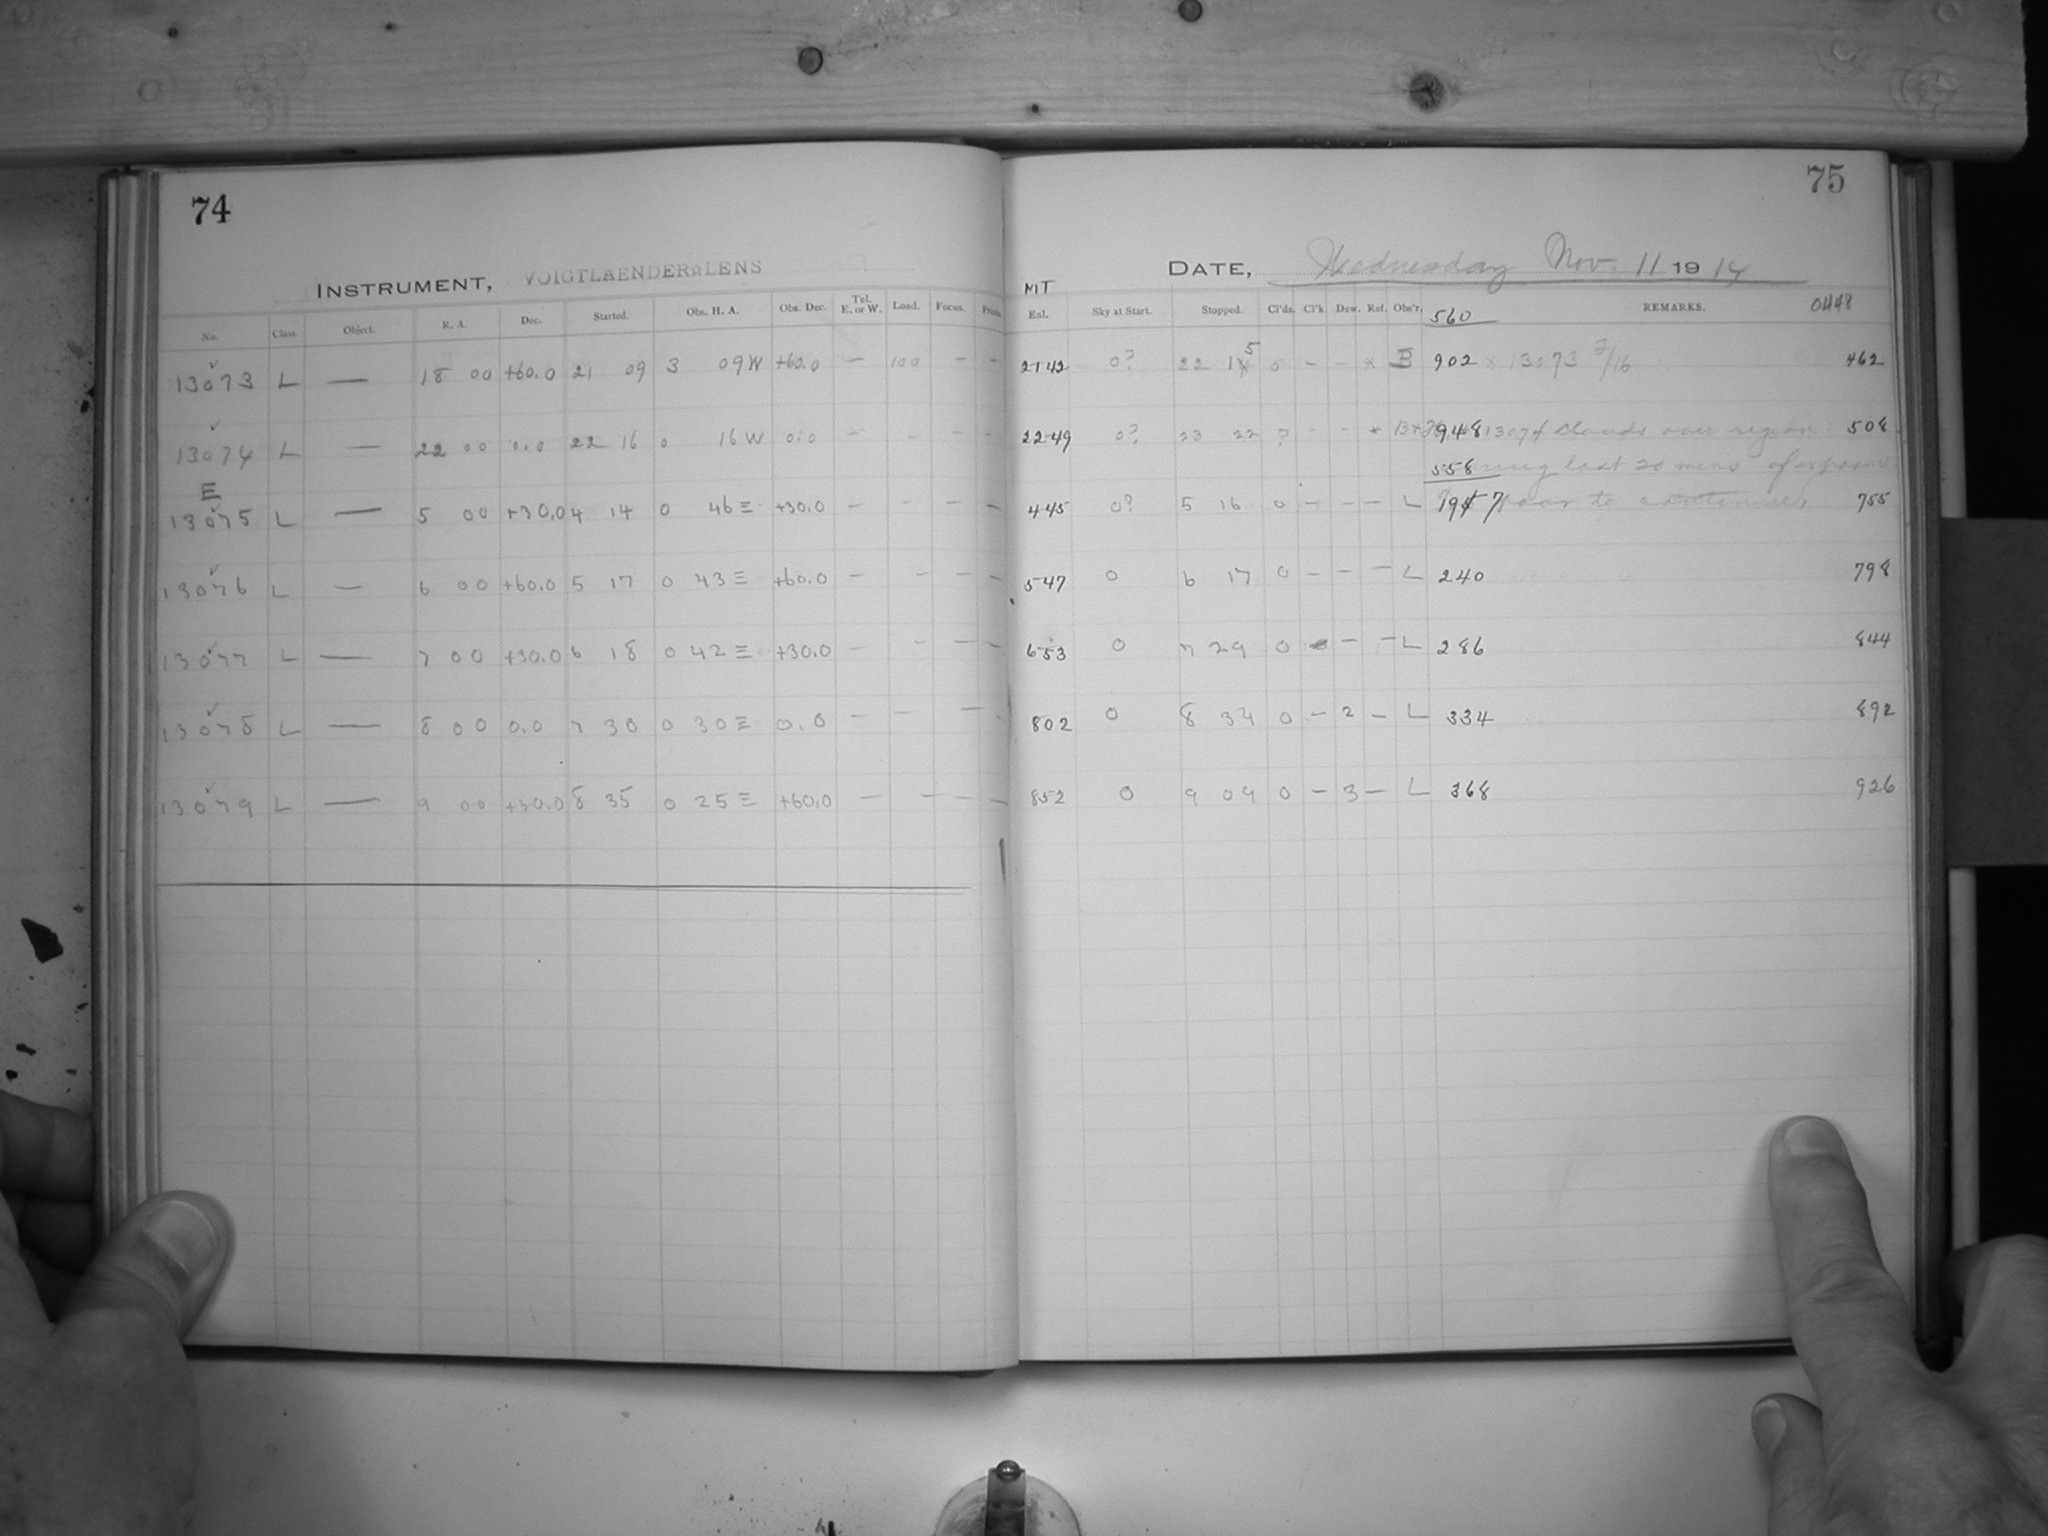 74
75
INSTRUMENT, VOIGTLAENDER LENS
DATE, Wednesday Nov. 11 1914
No. Class. Object. R. A. Dec. Started. Obs. H. A. Obs. Dec. Tel. E. or W. Load. Focus.
MT
Eal. Sky at Start. Stopped. Cl'ds. Cl'k Dew. Ref. Obs'r. 560 REMARKS. 0448
13073 L — 18 00 +60.0 21 09 3 09 W +60.0 — 100 — — 2142 0? 22 15 0 — — * B 902 * 13073 7/16 462
13074 L — 22 00 0.0 22 16 0 16 W 0.0 — — — — 2249 0? 23 22 ? — — * 948 13074 Clouds over region 508
558 last 20 mins of
E
13075 L — 5 00 +30.0 4 14 0 46 E +30.0 — — — — 445 0? 5 16 0 — — — L to continue 755
13076 L — 6 00 +60.0 5 17 0 43 E +60.0 — — — — 547 0 6 17 0 — — — L 240 798
13077 L — 7 00 +30.0 6 18 0 42 E +30.0 — — — — 653 0 7 29 0 — — L 286 844
13078 L — 8 00 0.0 7 30 0 30 E 0.0 — — — 802 0 8 34 0 — 2 — L 334 892
13079 L — 9 00 8 35 0 25 E +60.0 — — — — 852 0 9 09 0 — 3 — L 368 926